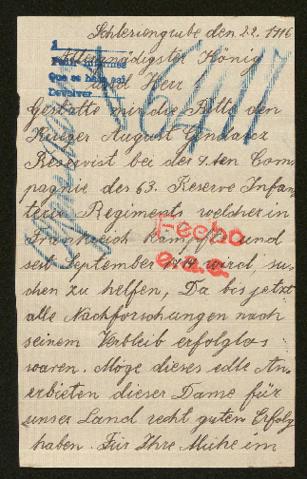 Schlesiengrube den 22. 1916
1
Pedir informes
Que se hace así
Devolver
Allergnädigster König
und Herr
Gestatte mir die Bitte den
Krieger August
Reservist bei der 4.ten Com-
pagnie des 63. Reserve Infan-
terie Regiments welcher in
Frankreich kämpfte und
seit September 1914 wird, su-
chen zu helfen, Da bis jetzt
alle Nachforschungen nach
seinem Verbleib erfolglos
waren. Möge dieses edle An-
erbieten dieser Dame für
unser Land recht guten Erfolg
haben. Für Ihre Mühe im
Fecho